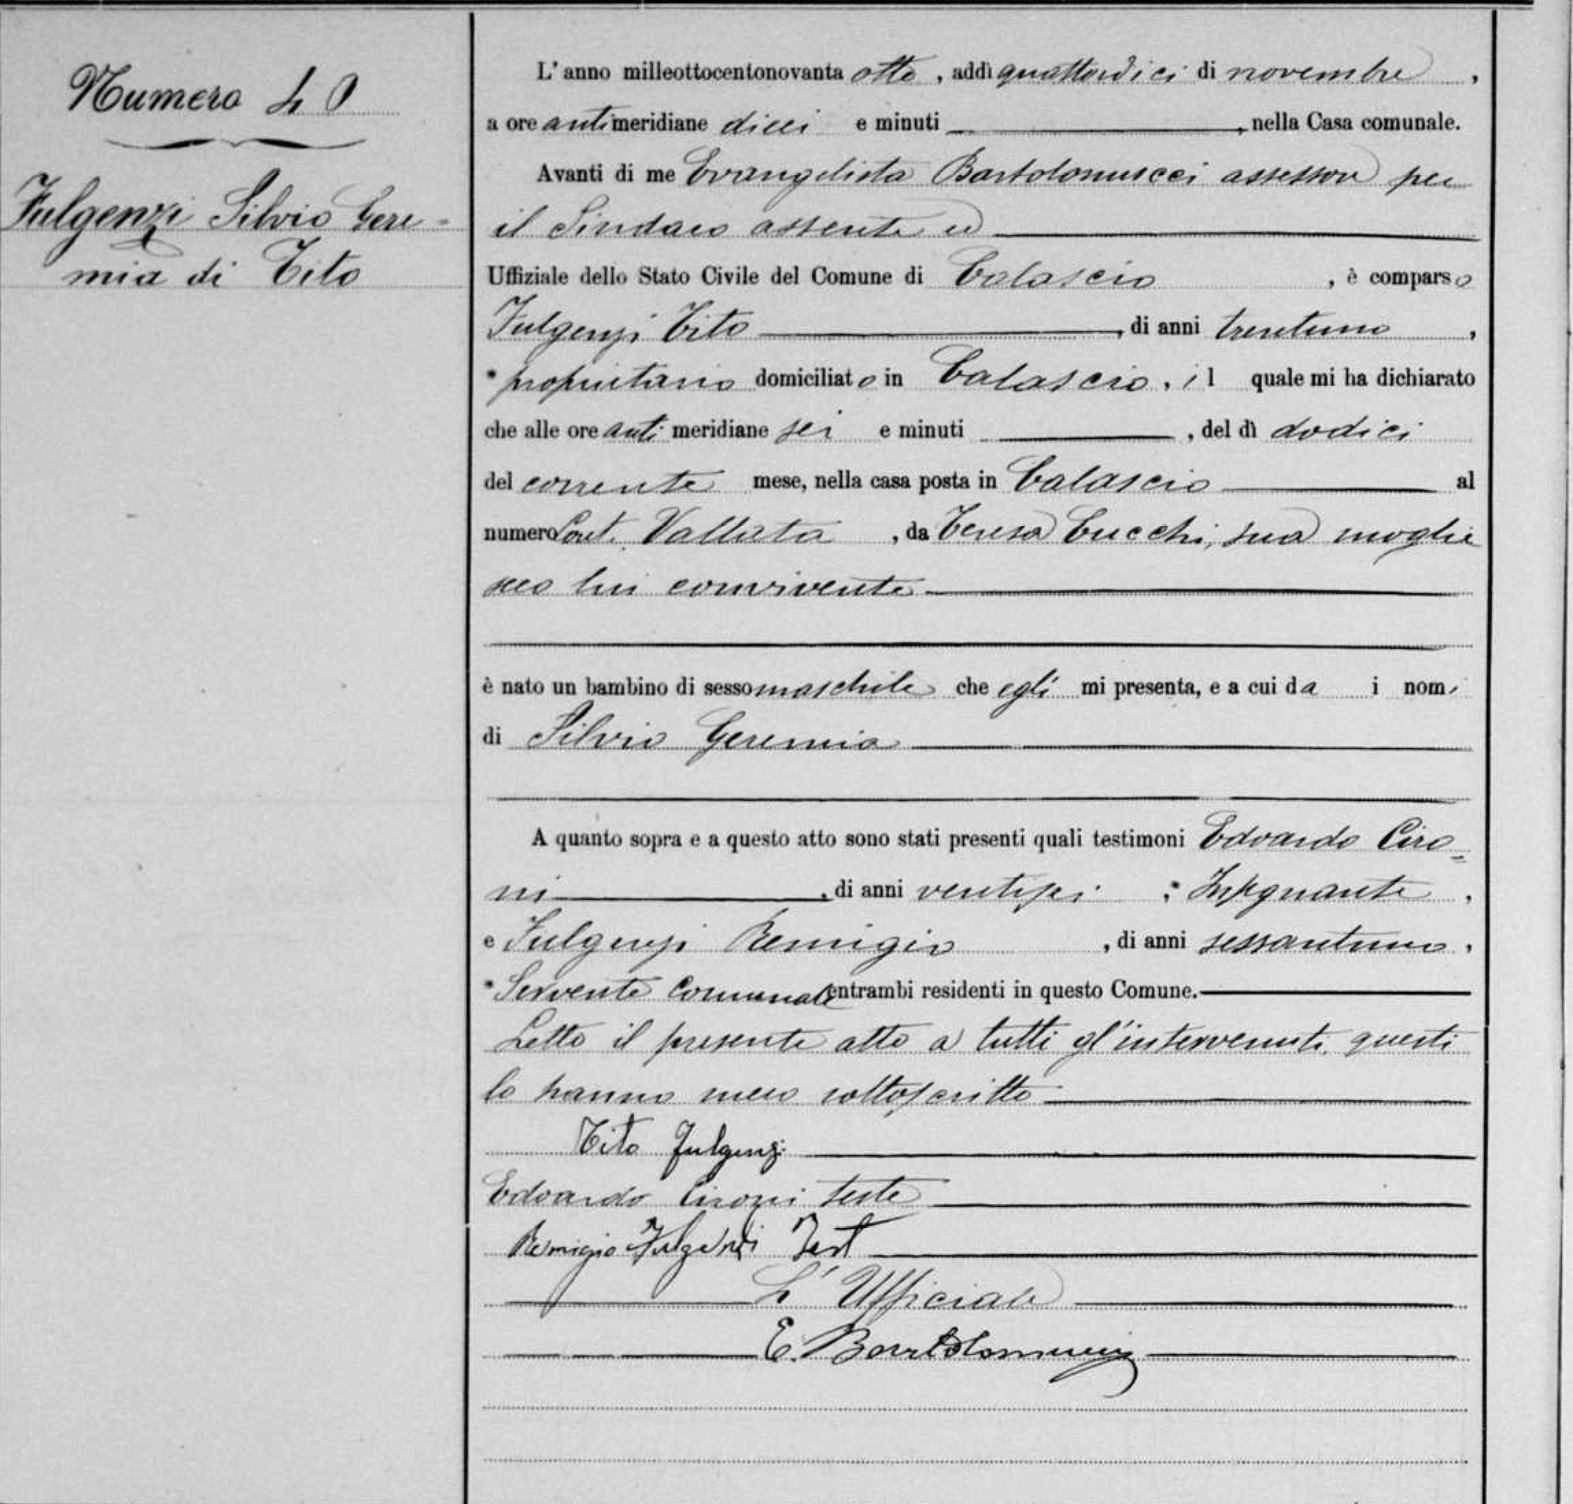 Numero 40
Fulgenzi Silvio Gere-
mia di Tito
L'anno milleottocentonovanta otto, addì quattordici di novembre,
a ore antimeridiane dieci e minuti, nella Casa comunale.
Avanti di me Evangelista Bartolomucci assessore per
il Sindaco assente ed
Uffiziale dello Stato Civile del Comune di Calascio, è comparso
Fulgenzi Tito, di anni trentuno,
proprietario domiciliato in Calascio, il quale mi ha dichiarato
che alle ore anti meridiane sei e minuti, del dì dodici
del corrente mese, nella casa posta in Calascio al
numero Cont. Vallata, da Teresa Cucchi, sua moglie
seco lui convivente
è nato un bambino di sesso maschile che egli mi presenta, e a cui da i nomi
di Silvio Geremia
A quanto sopra e a questo atto sono stati presenti quali testimoni Edoardo Ciro-
ni, di anni ventisei, Insegnante,
e Fulgenzi Remigio, di anni sessantuno,
Servente Comunale entrambi residenti in questo Comune.
Letto il presente atto a tutti gl'intervenuti, questi
lo hanno meco sottoscritto
Tito Fulgenzi
Edoardo Cironi teste
Remigio Fulgenzi Test
L'Ufficiale
E. Bartolomucci